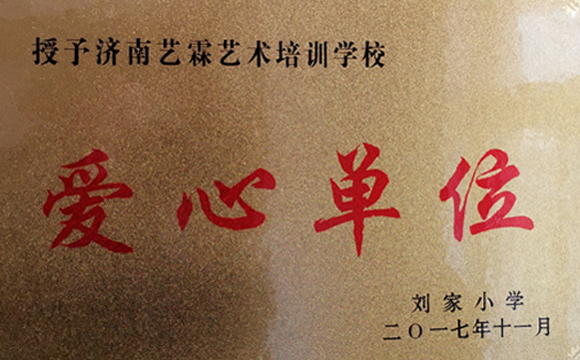 授予济南艺霖艺术培训学校
爱心单位
刘家小学
二〇一七年十一月